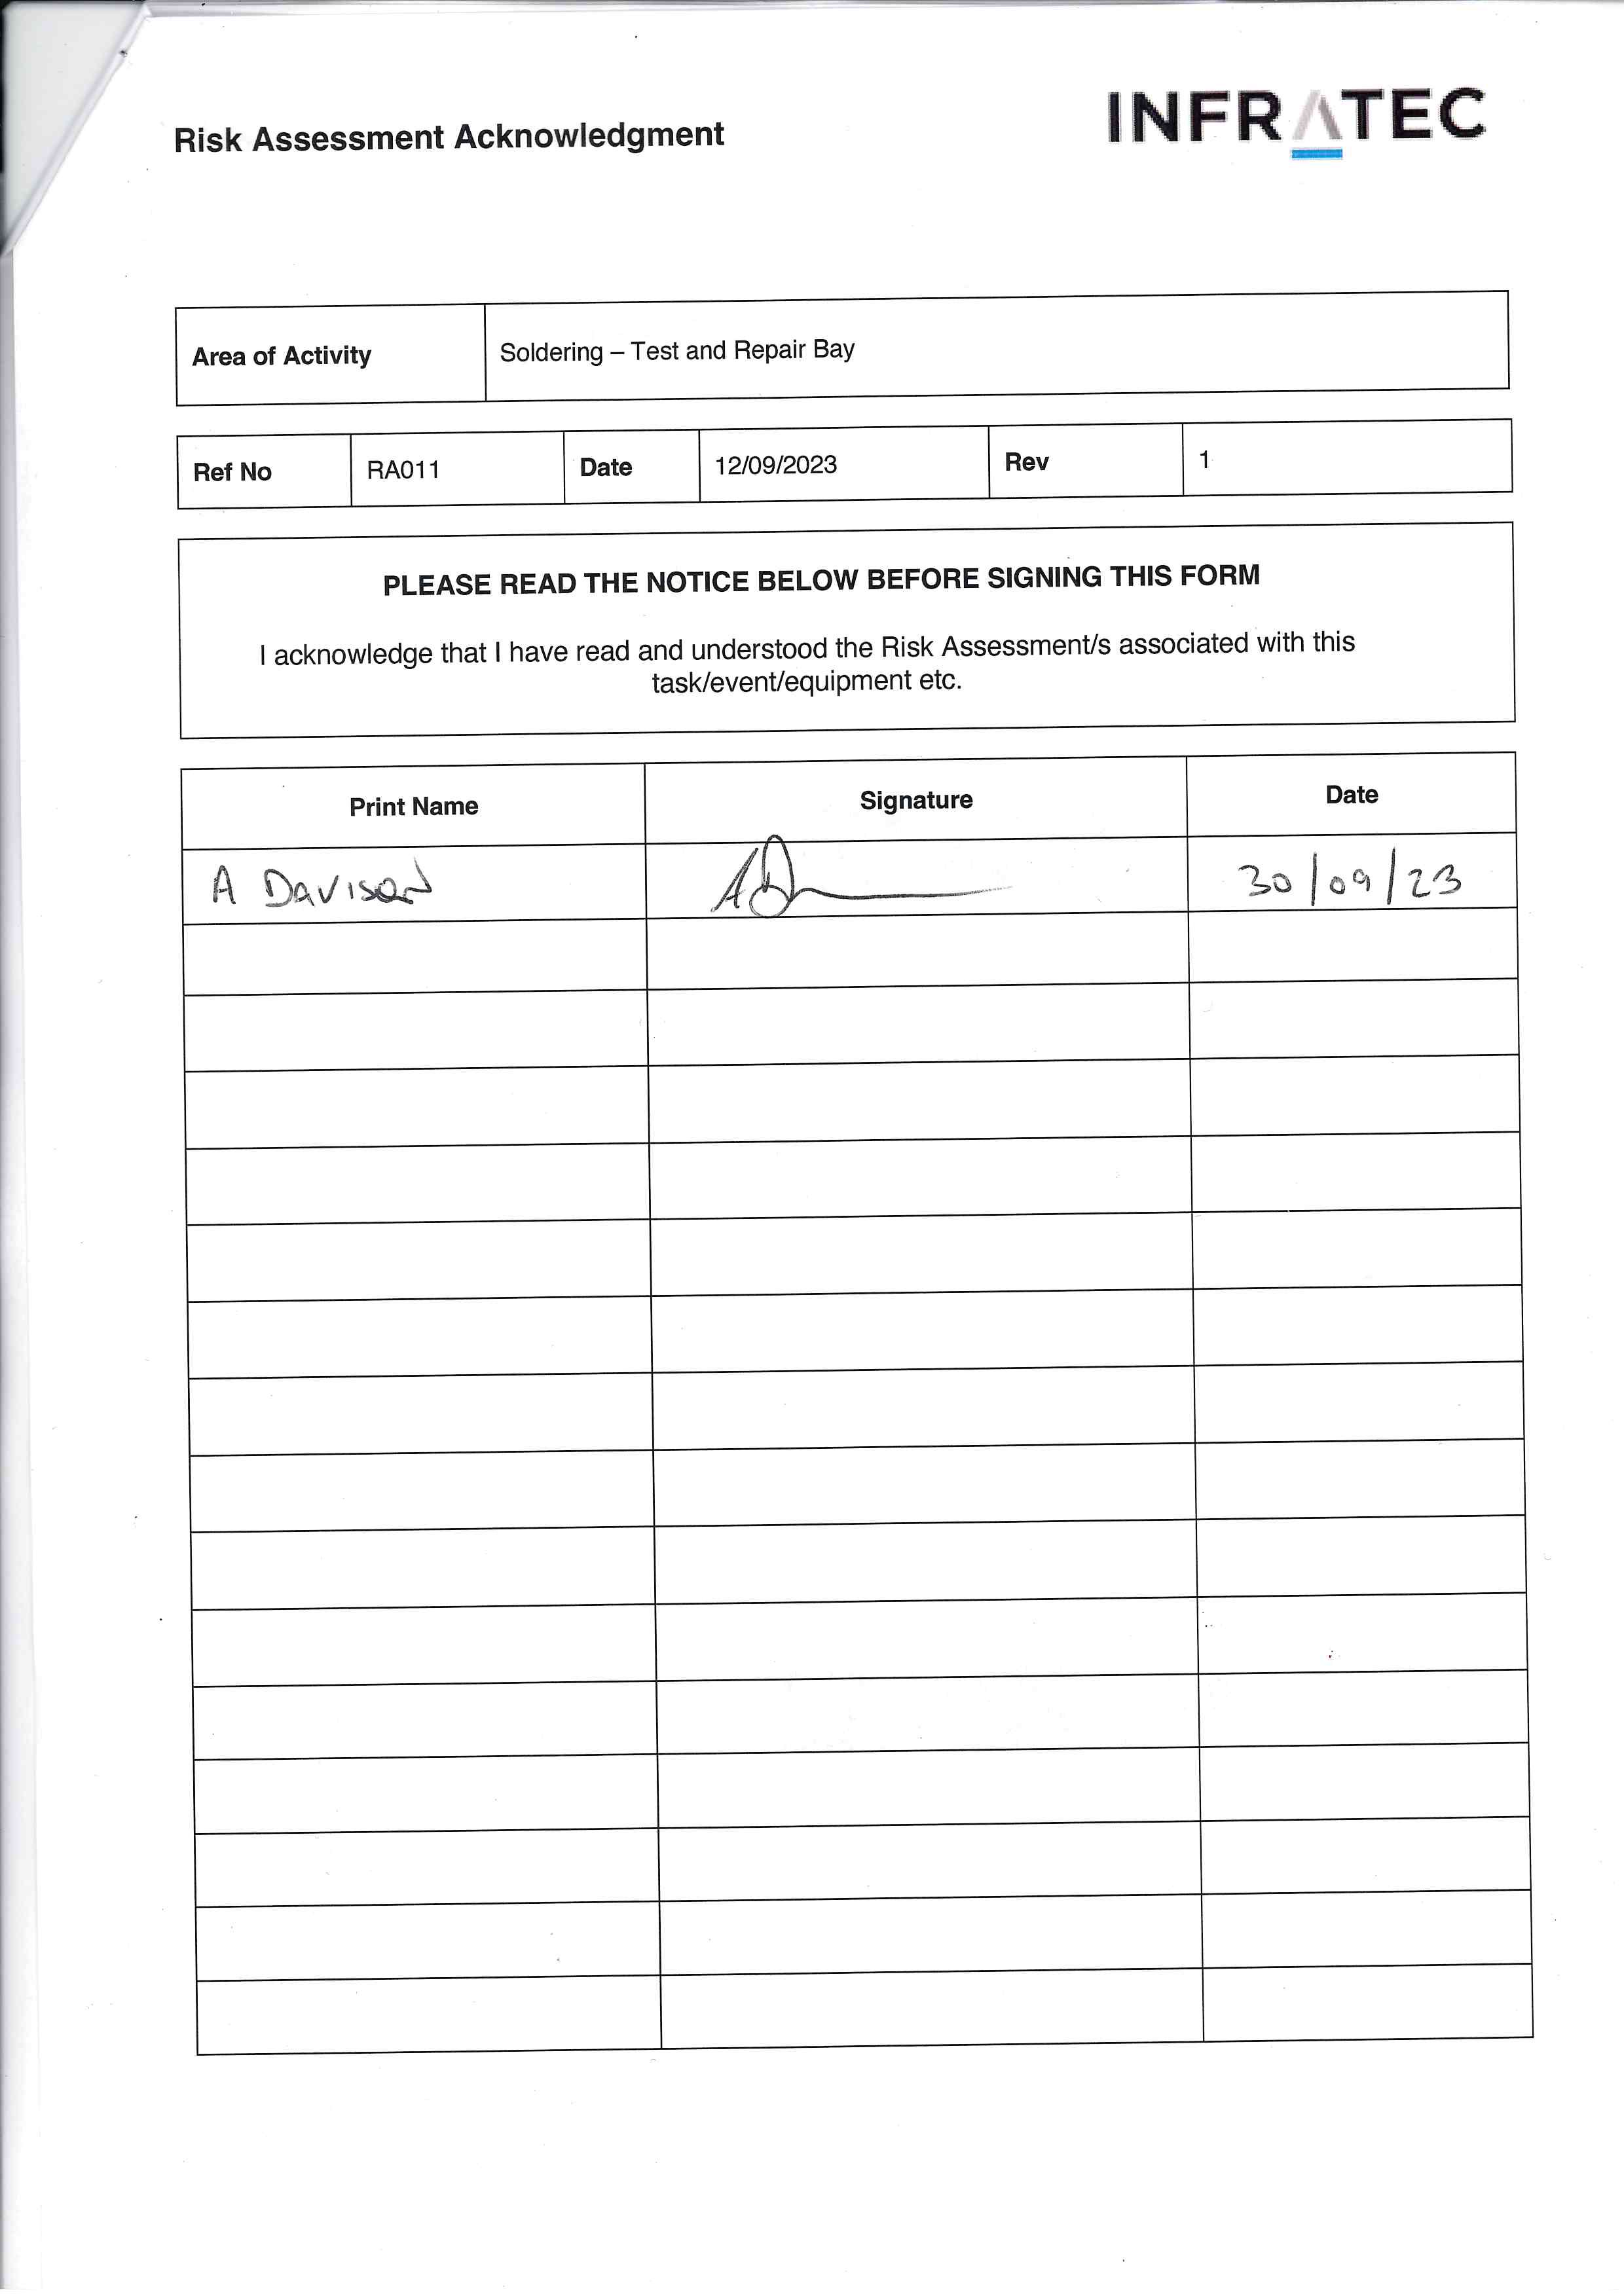 Risk Assessment Acknowledgment
INFRATEC
Area of Activity Soldering – Test and Repair Bay
Ref No RA011 Date 12/09/2023 Rev 1
PLEASE READ THE NOTICE BELOW BEFORE SIGNING THIS FORM
I acknowledge that I have read and understood the Risk Assessment/s associated with this
task/event/equipment etc.
Print Name Signature Date
A Davison 30/09/23